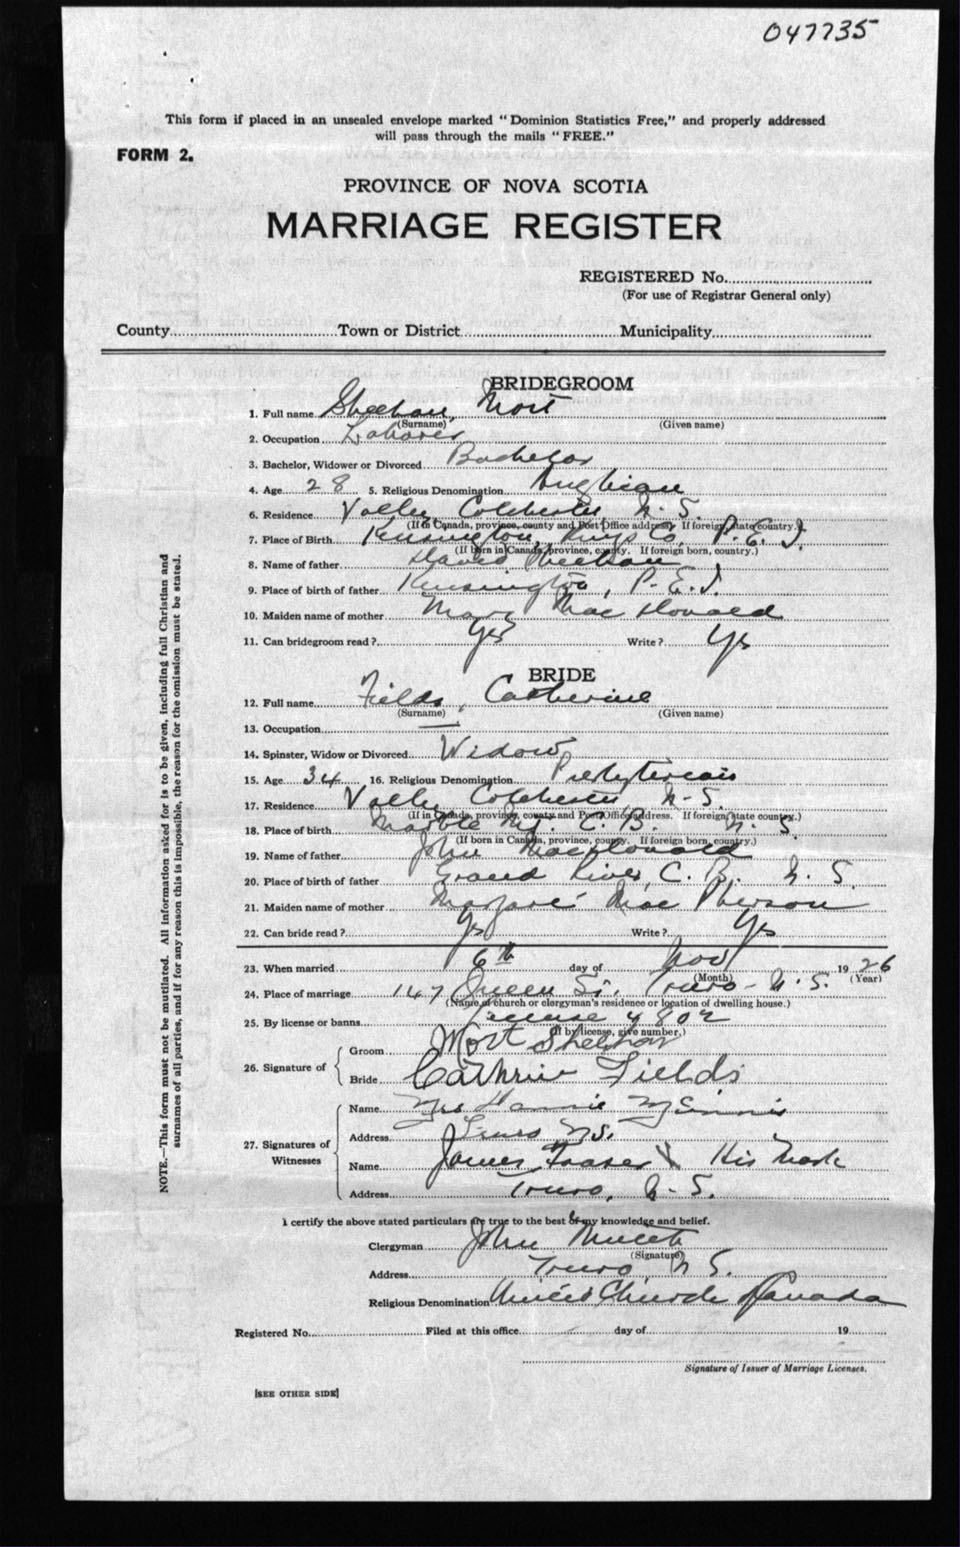 047735
This form if placed in an unsealed envelope marked "Dominion Statistics Free," and properly addressed
will pass through the mails "FREE."
FORM 2.
PROVINCE OF NOVA SCOTIA
MARRIAGE REGISTER
REGISTERED No.
(For use of Registrar General only)
County Town or District Municipality
BRIDEGROOM
1. Full name Sheehan, Mort
(Surname) (Given name)
2. Occupation Laborer
3. Bachelor, Widower or Divorced Bachelor
4. Age 28 5. Religious Denomination Anglican
6. Residence Valley Colchester, N. S.
(If in Canada, province, county and Post Office address. If foreign, state country.)
7. Place of Birth Kensington, Kings Co. P. E. I.
(If born in Canada, province, county. If foreign born, country.)
8. Name of father David Sheehan
9. Place of birth of father Kensington, P. E. I.
10. Maiden name of mother Mary Mac Donald
11. Can bridegroom read? Yes Write? Yes
BRIDE
12. Full name Fields, Catherine
(Surname) (Given name)
13. Occupation —
14. Spinster, Widow or Divorced Widow
15. Age 34 16. Religious Denomination Presbyterian
17. Residence Valley Colchester N. S.
(If in Canada, province, county and Post Office address. If foreign, state country.)
18. Place of birth Marble Mt. C. B. N. S.
(If born in Canada, province, county. If foreign born, country.)
19. Name of father John MacDonald
20. Place of birth of father Grand River, C. B. N. S.
21. Maiden name of mother Mac Pherson
22. Can bride read? Yes Write? Yes
23. When married 6th day of Nov 1926
(Month) (Year)
24. Place of marriage 147 Queen St. Truro - N. S.
(Name of church or clergyman's residence or location of dwelling house.)
25. By license or banns License 4802
(If by license, give number.)
26. Signature of
Groom Mort Sheehan
Bride Cathrine Fields
27. Signatures of
Witnesses
Name Mrs McInnis
Address Truro N.S.
Name James Fraser X His Mark
Address Truro, N. S.
I certify the above stated particulars are true to the best of my knowledge and belief.
Clergyman John
(Signature)
Address Truro N S.
Religious Denomination United Church Canada
Registered No. Filed at this office day of 19
Signature of Issuer of Marriage Licenses.
[SEE OTHER SIDE]
NOTE.—This form must not be mutilated. All information asked for is to be given, including full Christian and
surnames of all parties, and if for any reason this is impossible, the reason for the omission must be stated.